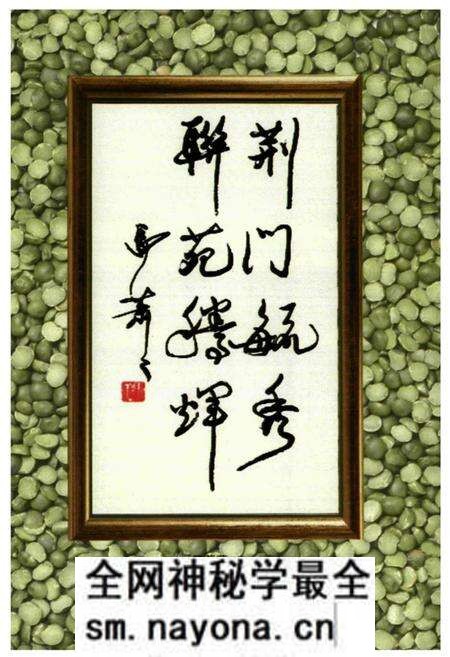 荆门毓秀
联苑腾辉
马萧萧
全网神秘学最全
sm.nayona.cn